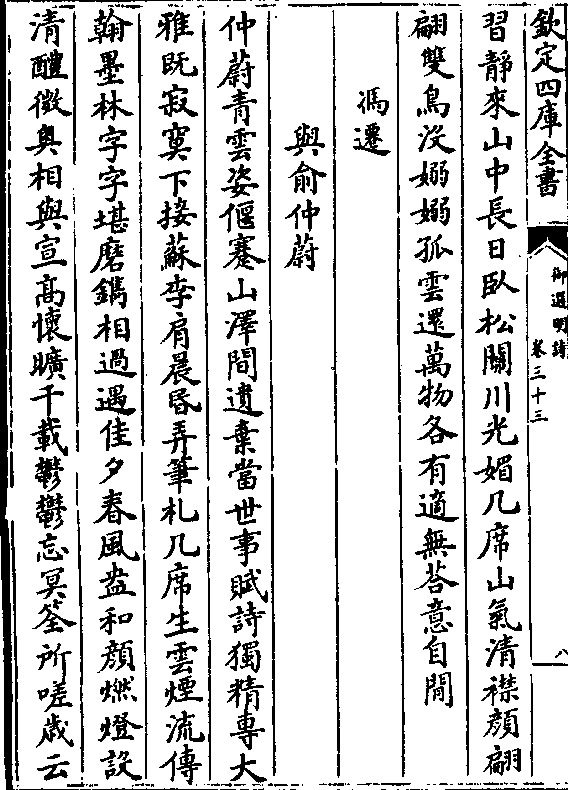 欽定四庫全書
御選明詩
卷三十三
八
習静來山中長日臥松關川光媚几席山氣清襟顔翩
翩雙鳥沒嫋嫋孤雲還萬物各有適無荅意自閒
馮遷
與俞仲蔚
仲蔚青雲姿偃蹇山澤間遺棄當世事賦詩獨精專大
雅既寂寞下接蘇李肩晨昏弄筆札几席生雲煙流傳
翰墨林字字堪磨鐫相過遇佳夕春風盎和顔燃燈設
清醴微奥相與宣高懷曠千載鬱鬱忘冥筌所嗟歲云